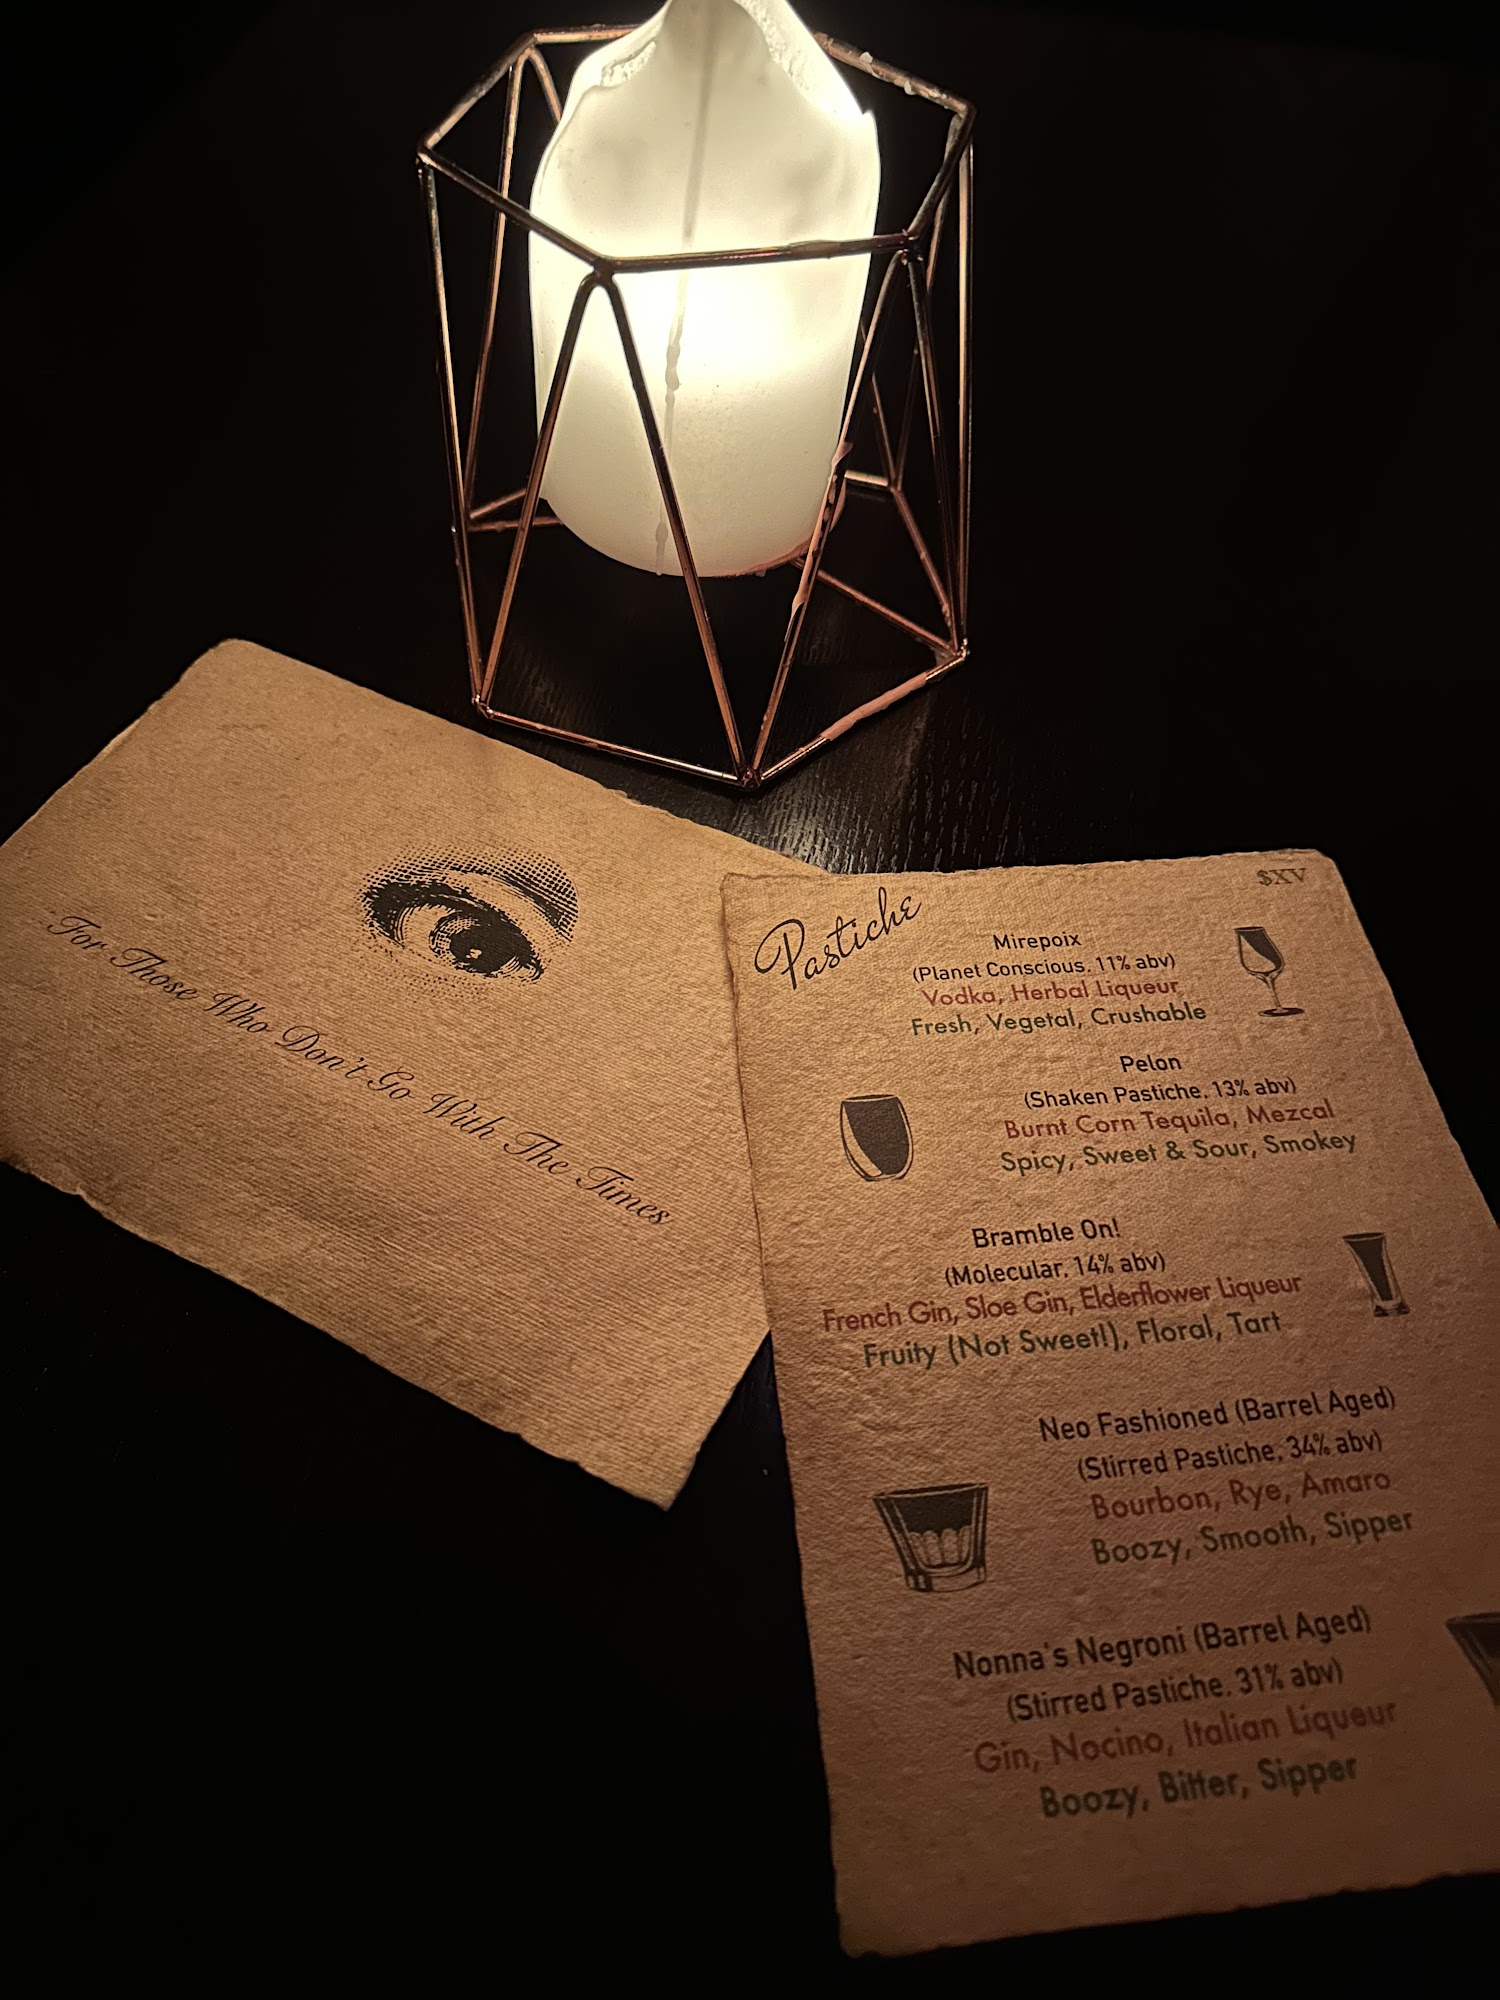 For Those Who Don't Go With The Times
Pastiche
$XV
Mirepoix
(Planet Conscious, 11% abv)
Vodka, Herbal Liqueur
Fresh, Vegetal, Crushable
Pelon
(Shaken Pastiche, 13% abv)
Burnt Corn Tequila, Mezcal
Spicy, Sweet & Sour, Smokey
Bramble On!
(Molecular, 14% abv)
French Gin, Sloe Gin, Elderflower Liqueur
Fruity (Not Sweet!), Floral, Tart
Neo Fashioned (Barrel Aged)
(Stirred Pastiche, 34% abv)
Bourbon, Rye, Amaro
Boozy, Smooth, Sipper
Nonna's Negroni (Barrel Aged)
(Stirred Pastiche, 31% abv)
Gin, Nocino, Italian Liqueur
Boozy, Bitter, Sipper